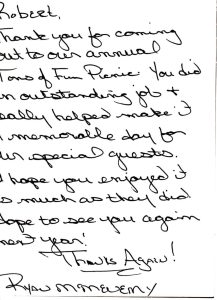 Robert,
Thank you for coming
out to our annual
Tons of Fun Picnic. You did
an outstanding job +
really helped make it
a memorable day for
our special guests.
I hope you enjoyed it
as much as they did
Hope to see you again
next year!
Thanks Again!
Ryan